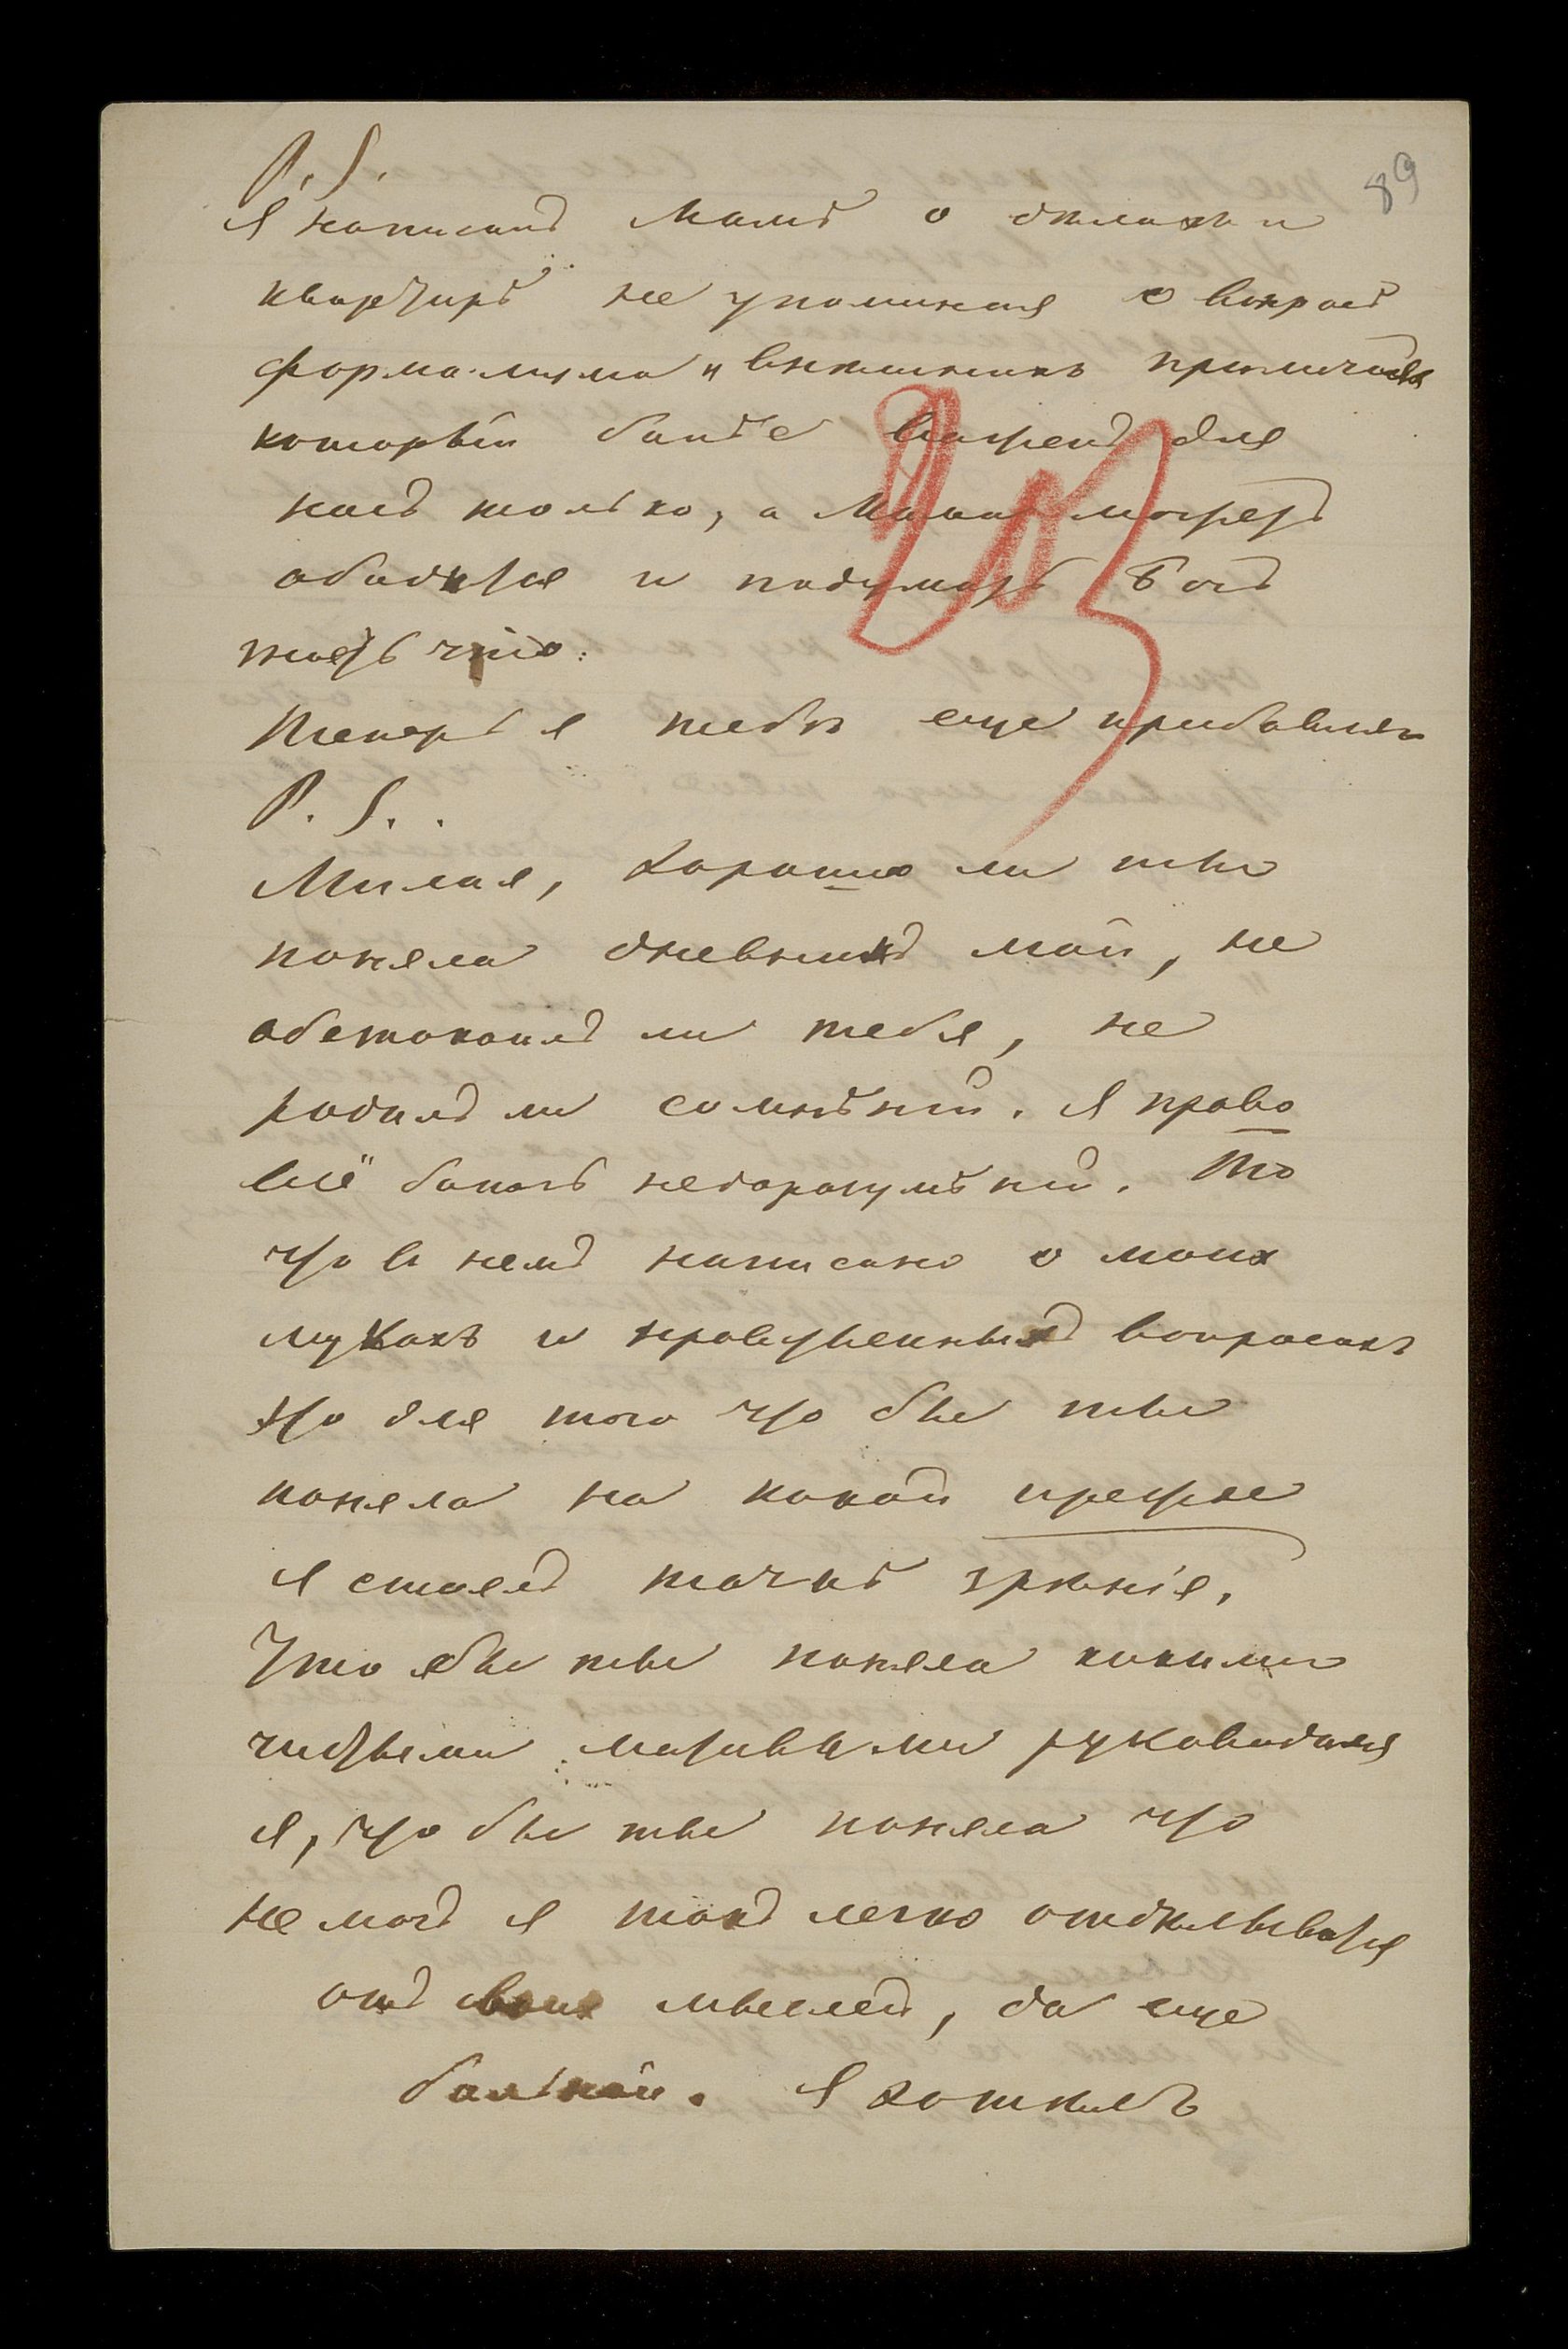 P.S.
89
Я написалъ Мамѣ о дѣлахъ и
квартирѣ не упоминая о вопросѣ
формализма и внѣшнихъ приличій
который болѣе важенъ для
насъ только, а Мама можетъ
обидѣтся и подумать Богъ
знаетъ что.
Теперь я тебѣ еще прибавляю
P.S..
Милая, хорошо ли ты
поняла дневникъ мой, не
обезпокоилъ ли тебя, не
родилъ ли сомнѣній. Я право
всё боюсь недоразумѣній. То
что в немъ написано о моихъ
мукахъ и нравственныхъ вопросахъ
то для того что бы ты
поняла на какой прежде
я стоялъ точкѣ зрѣнія.
Что бы ты поняла какими
чистыми мотивами руководился
я, что бы ты поняла что
не могъ я такъ легко отдѣлываться
отъ своихъ мыслей, да еще
больной. Я хотѣлъ